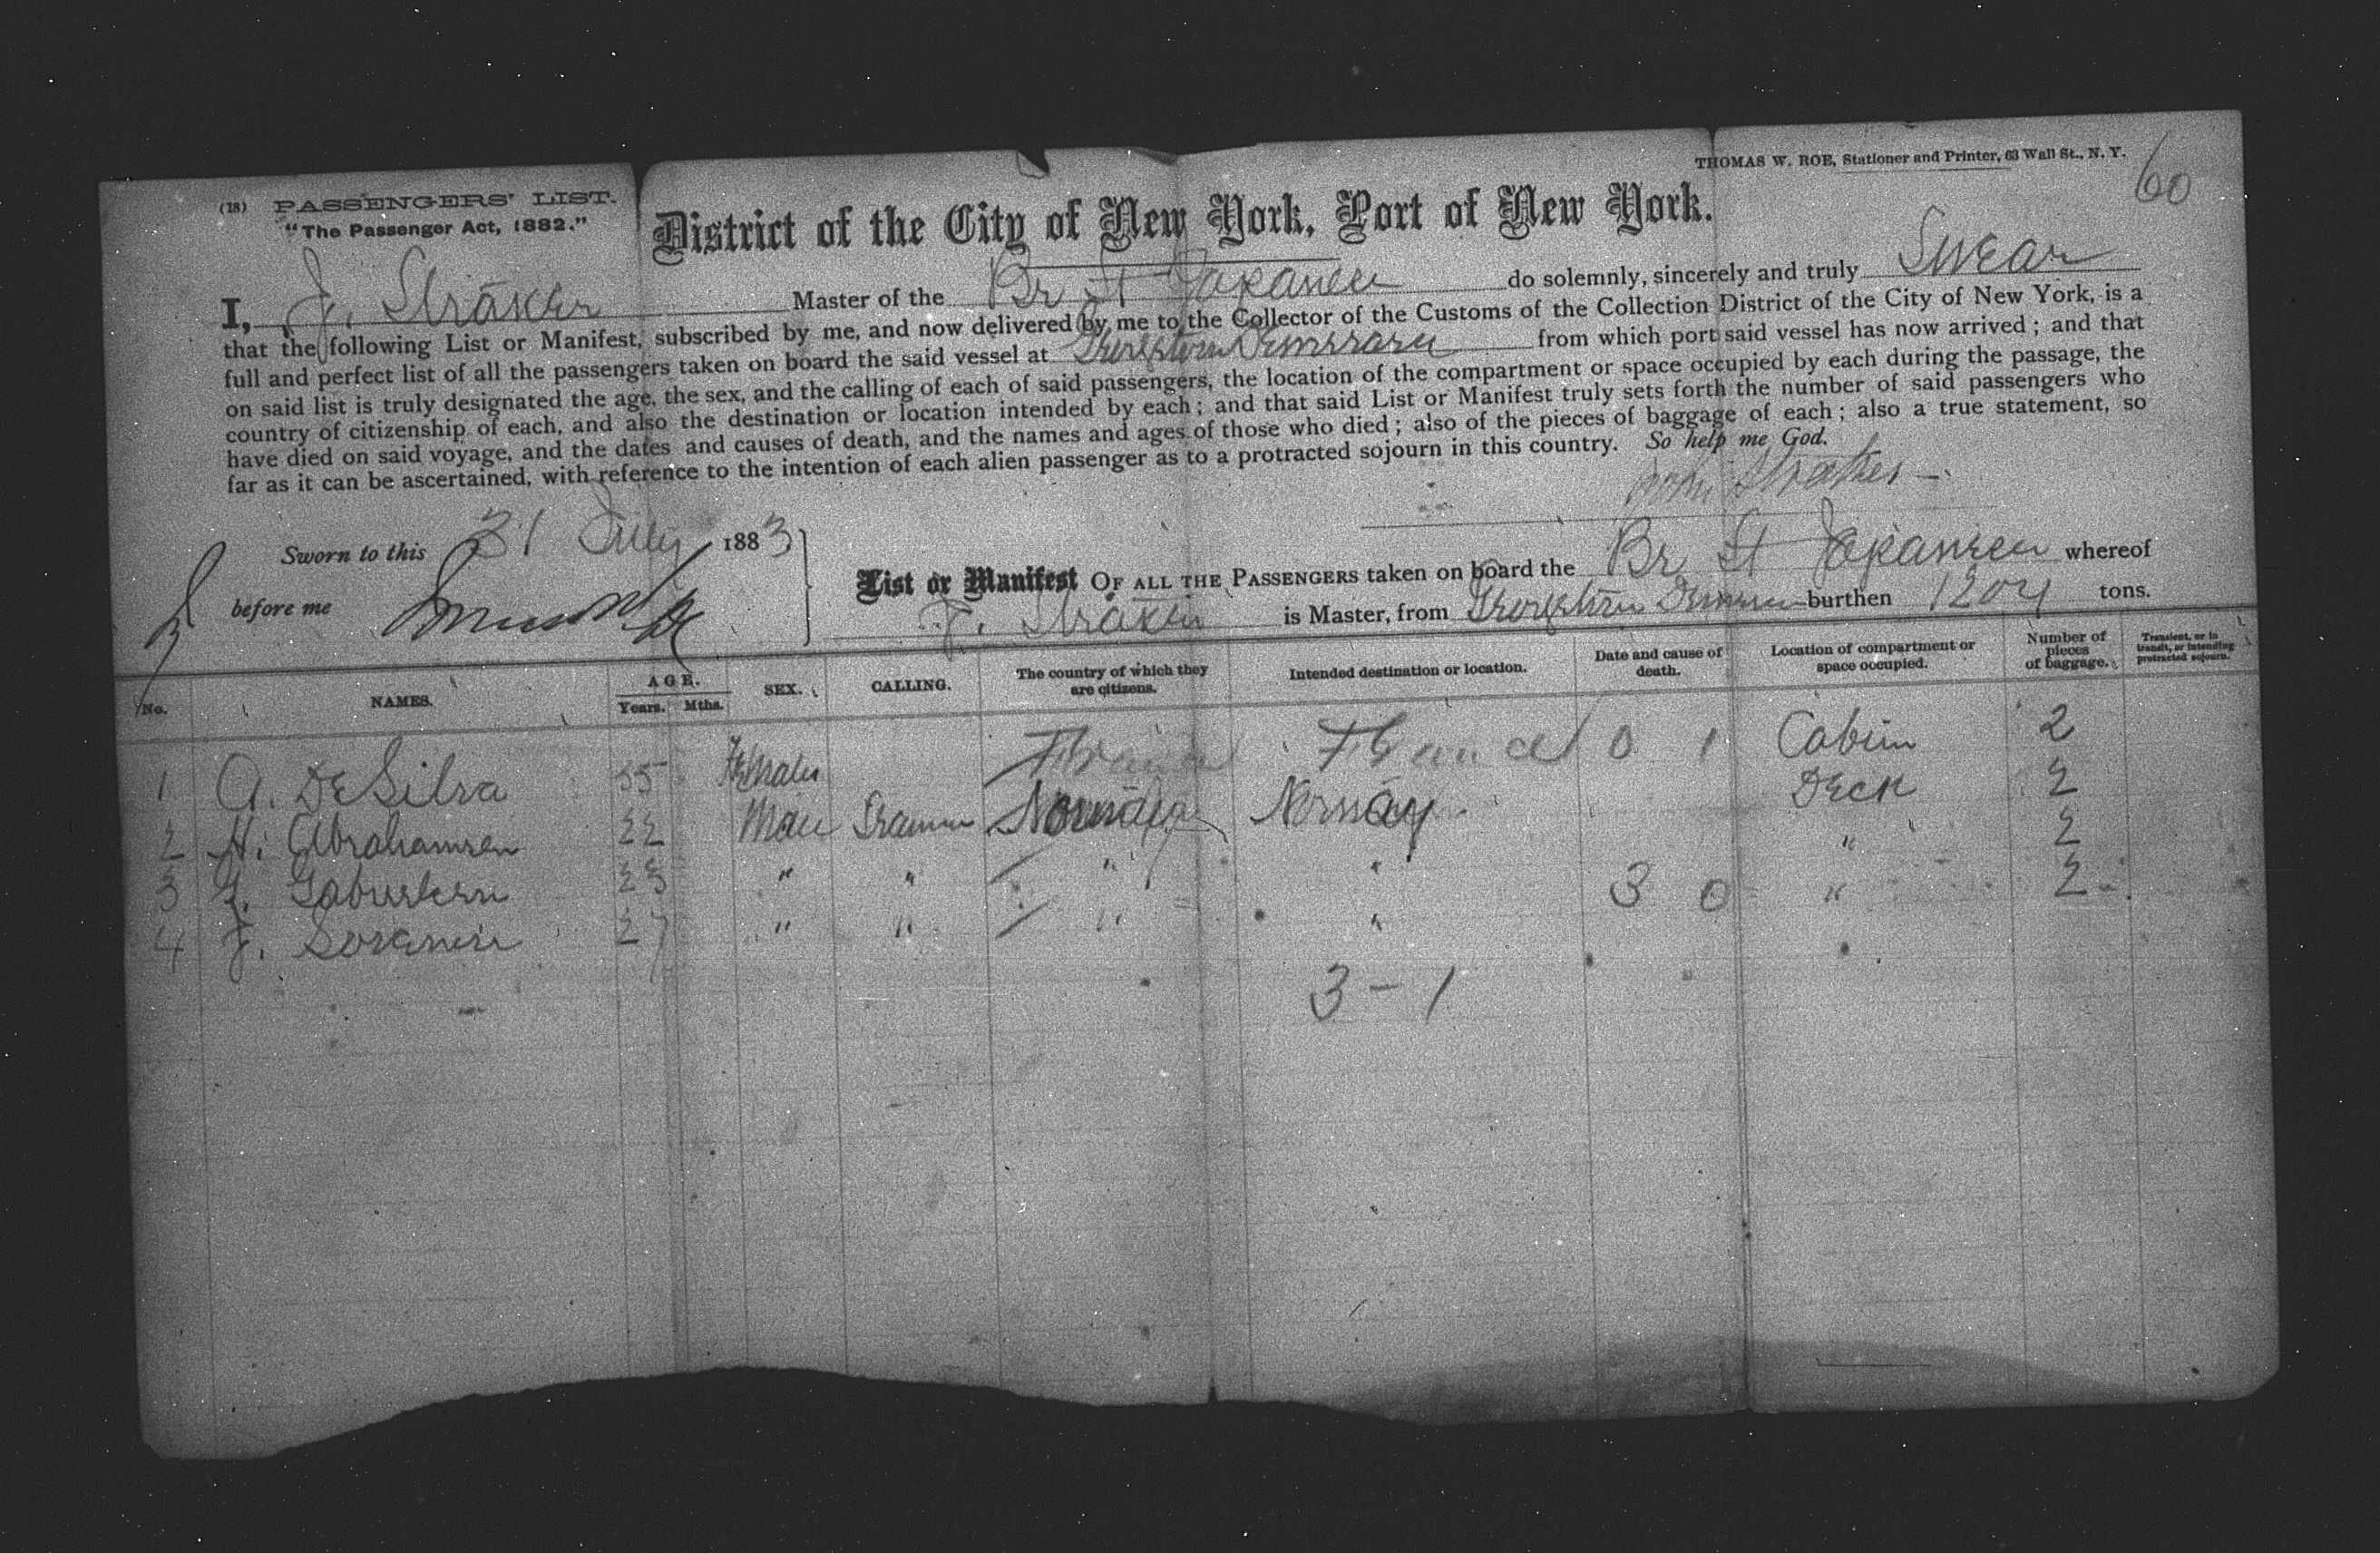 THOMAS W. ROE, Stationer and Printer, 63 Wall St., N. Y.
60
(18) PASSENGERS' LIST.
"The Passenger Act, 1882."
District of the City of New York, Port of New York.
I, J. Straker Master of the Br St do solemnly, sincerely and truly Swear
that the following List or Manifest, subscribed by me, and now delivered by me to the Collector of the Customs of the Collection District of the City of New York, is a
full and perfect list of all the passengers taken on board the said vessel at Demerara from which port said vessel has now arrived; and that
on said list is truly designated the age, the sex, and the calling of each of said passengers, the location of the compartment or space occupied by each during the passage, the
country of citizenship of each, and also the destination or location intended by each; and that said List or Manifest truly sets forth the number of said passengers who
have died on said voyage, and the dates and causes of death, and the names and ages of those who died; also of the pieces of baggage of each; also a true statement, so
far as it can be ascertained, with reference to the intention of each alien passenger as to a protracted sojourn in this country. So help me God.
John Straker
Sworn to this 31 July 1883
before me
List or Manifest OF ALL THE PASSENGERS taken on board the Br St whereof
J. Straker is Master, from burthen 1204 tons.
No. NAMES. AGE. Years. Mths. SEX. CALLING. The country of which they are citizens. Intended destination or location. Date and cause of death. Location of compartment or space occupied. Number of pieces of baggage. Transient, or in transit, or intending protracted sojourn.
1 A. DeSilva 35 Female 0 1 Cabin 2
2 H. Abrahamsen 22 Male Seaman Norway Norway Deck 2
3 23 " " " " " 2
4 J. 27 " " " " 3 0 " 2
3 - 1